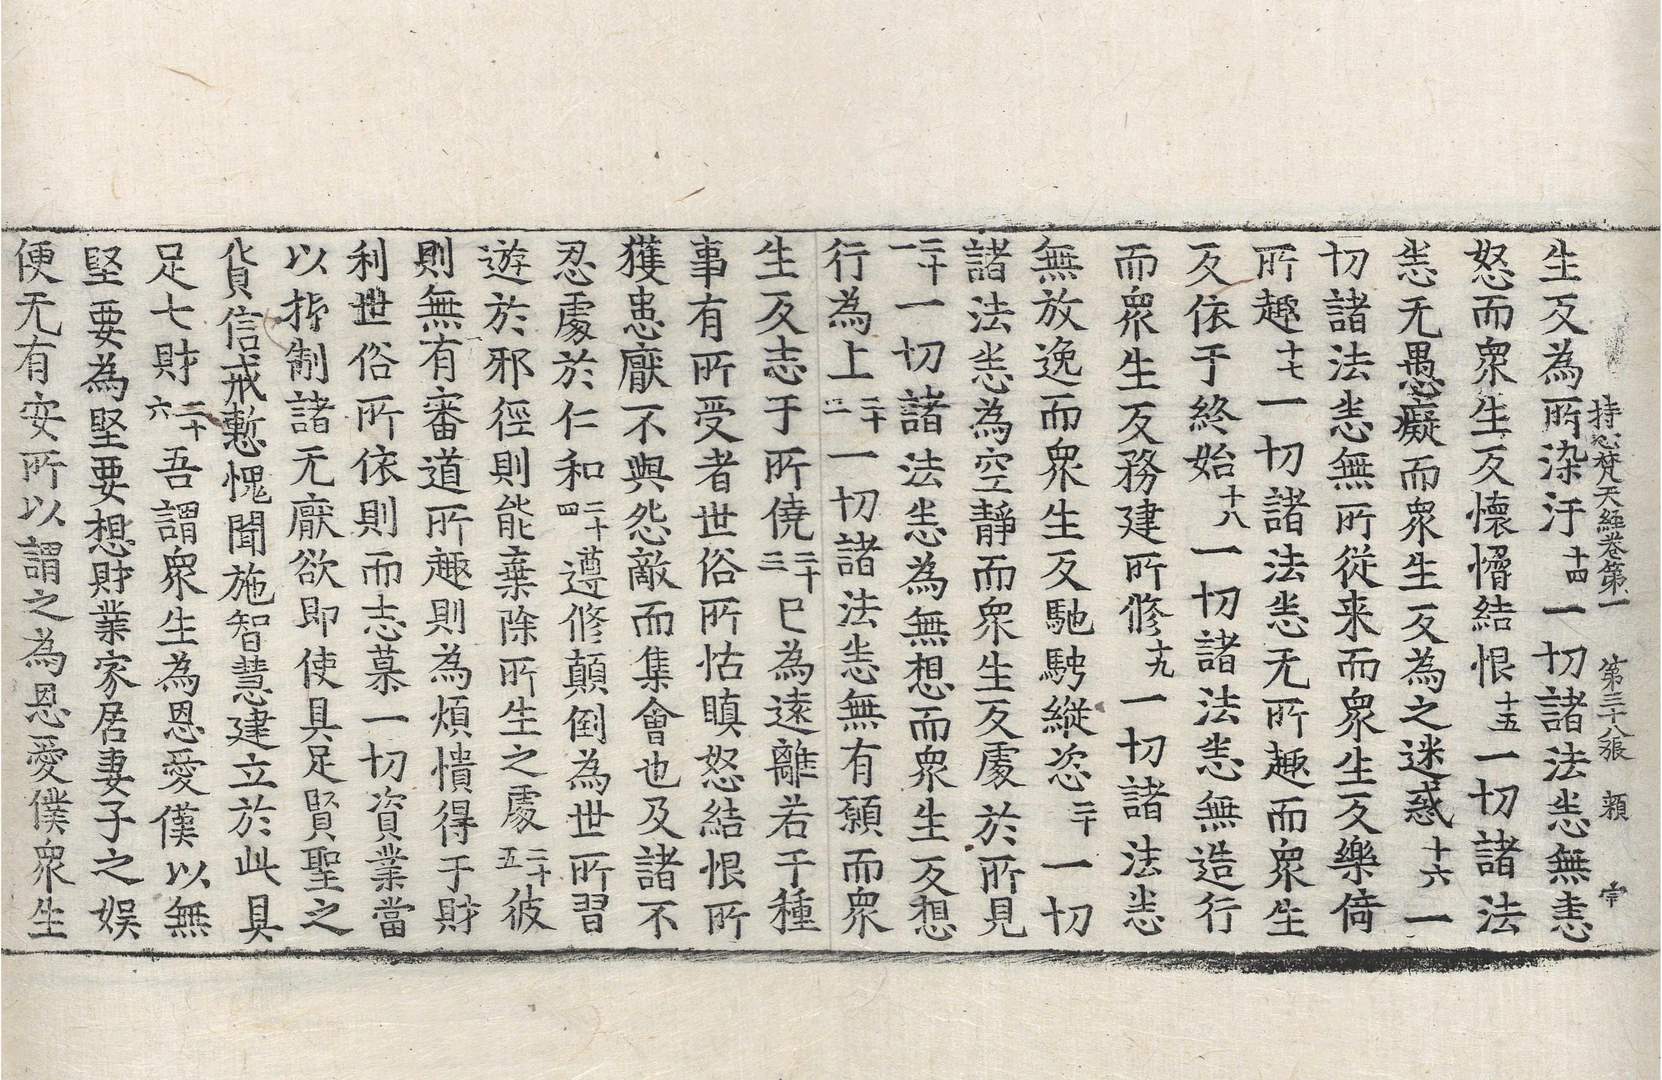 持心梵天經卷第一 第三十八張 賴 字
生反為所染汙十四一切諸法恙無恚
怒而衆生反懷憎結恨十五一切諸法
恙无愚癡而衆生反為之迷惑十六一
切諸法恙無所從来而衆生反樂倚
所趣十七一切諸法恙无所趣而衆生
反依于終始十八一切諸法恙無造行
而衆生反務建所修十九一切諸法恙
無放逸而衆生反馳騁縱恣二十一切
諸法恙為空靜而衆生反處於所見
二十一一切諸法恙為無想而衆生反想
行為上二十二一切諸法恙無有願而衆
生反志于所僥二十三已為遠離若干種
事有所受者世俗所怙瞋怒結恨所
獲患厭不與怨敵而集會也及諸不
忍處於仁和二十四遵修顛倒為世所習
遊於邪徑則能棄除所生之處二十五彼
則無有審道所趣則為煩憒得于財
利世俗所依則而志慕一切資業當
以折制諸无厭欲即使具足賢聖之
貨信戒慙愧聞施智慧建立於此具
足七財二十六吾謂衆生為恩愛僕以無
堅要為堅要想財業家居妻子之娛
便无有安所以謂之為恩愛僕衆生